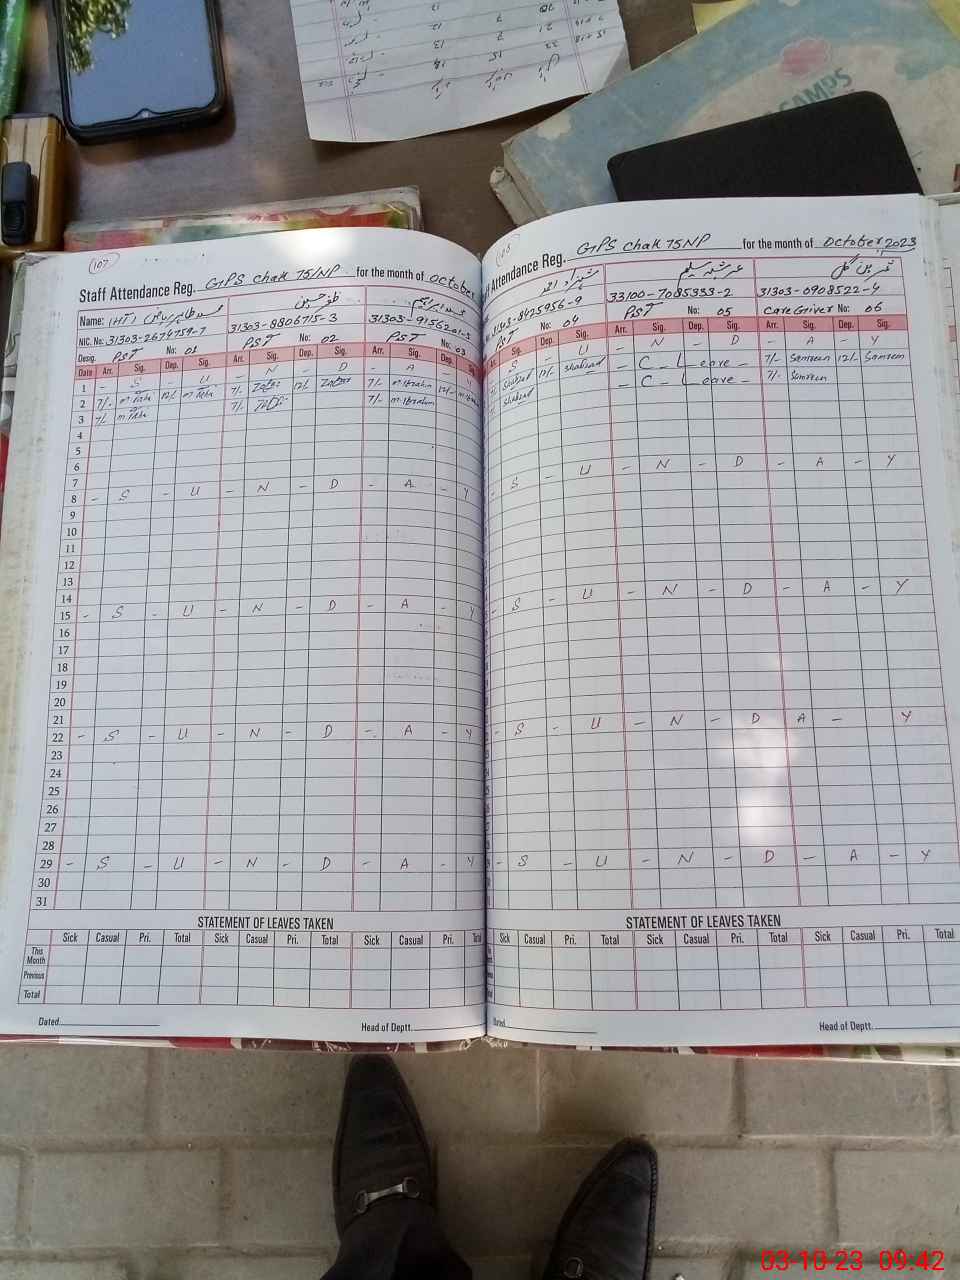 CAMPS
107
Staff Attendance Reg. GPS Chak 75/NP for the month of October
Name: (HT)
NIC. No: 31303-2674759-7 31303-8806715-3 31303-9156201-5
Desig. PST No: 01 PST No: 02 PST No: 03
Date Arr. Sig. Dep. Sig. Arr. Sig. Dep. Sig. Arr. Sig. Dep. Sig.
1 - S - U - N - D - A - Y
2 7/- m Tahir 12/- m Tahir 7/- Zafar 12/- Zafar 7/- m Ibrahim 12/- m Ibrahim
3 7/- m Tahir 7/- Zafar 7/- m Ibrahim
4
5
6
7
8 - S - U - N - D - A - Y
9
10
11
12
13
14
15 - S - U - N - D - A - Y
16
17
18
19
20
21
22 - S - U - N - D - A - Y
23
24
25
26
27
28
29 - S - U - N - D - A - Y
30
31
STATEMENT OF LEAVES TAKEN
Sick Casual Pri. Total Sick Casual Pri. Total Sick Casual Pri. Total
This Month
Previous
Total
Dated Head of Deptt.
Attendance Reg. GPS Chak 75NP for the month of October, 2023
شہزاد احمد
31303-8425956-9 33100-7085333-2 31303-0908522-4
PST No: 04 PST No: 05 Care Griver No: 06
Arr. Sig. Dep. Sig. Arr. Sig. Dep. Sig. Arr. Sig. Dep. Sig.
S - U - N - D - A - Y
7/- Shahzad 12/- Shahzad - C - Leave - 7/- Samreen 12/- Samreen
Shahzad - C - Leave - 7/- Samreen
- S - U - N - D - A - Y
- S - U - N - D - A - Y
- S - U - N - D A - Y
- S - U - N - D - A - Y
STATEMENT OF LEAVES TAKEN
Sick Casual Pri. Total Sick Casual Pri. Total Sick Casual Pri. Total
Dated Head of Deptt.
03-10-23 09:42